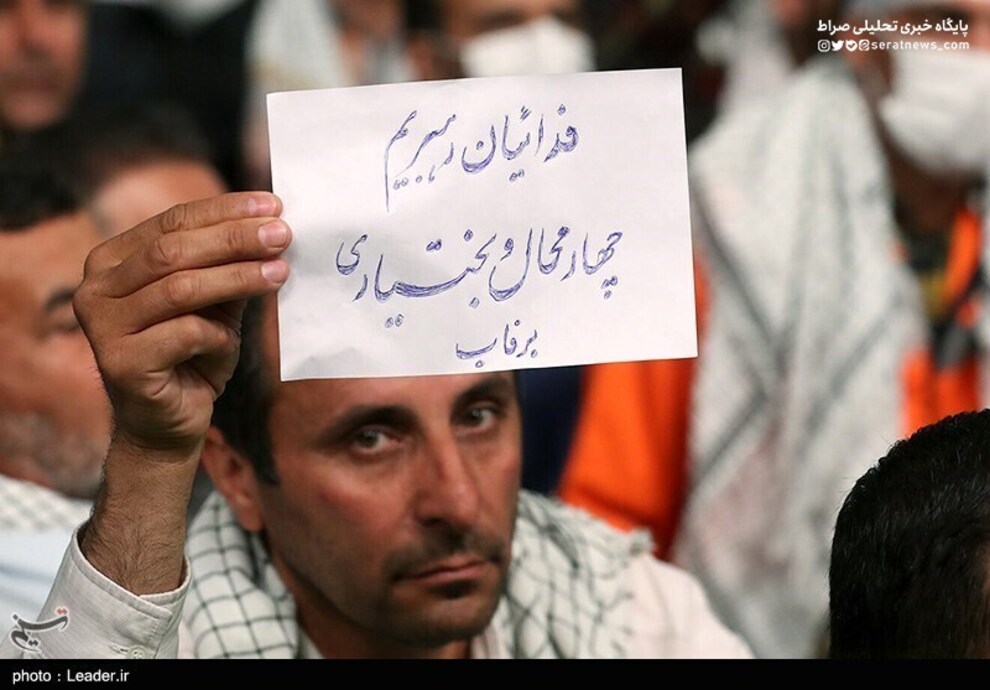 پایگاه خبری تحلیلی صراط
seratnews_com
فدائیان رهبریم
چهارمحال و بختیاری
برفاب
تسنیم
photo : Leader.ir